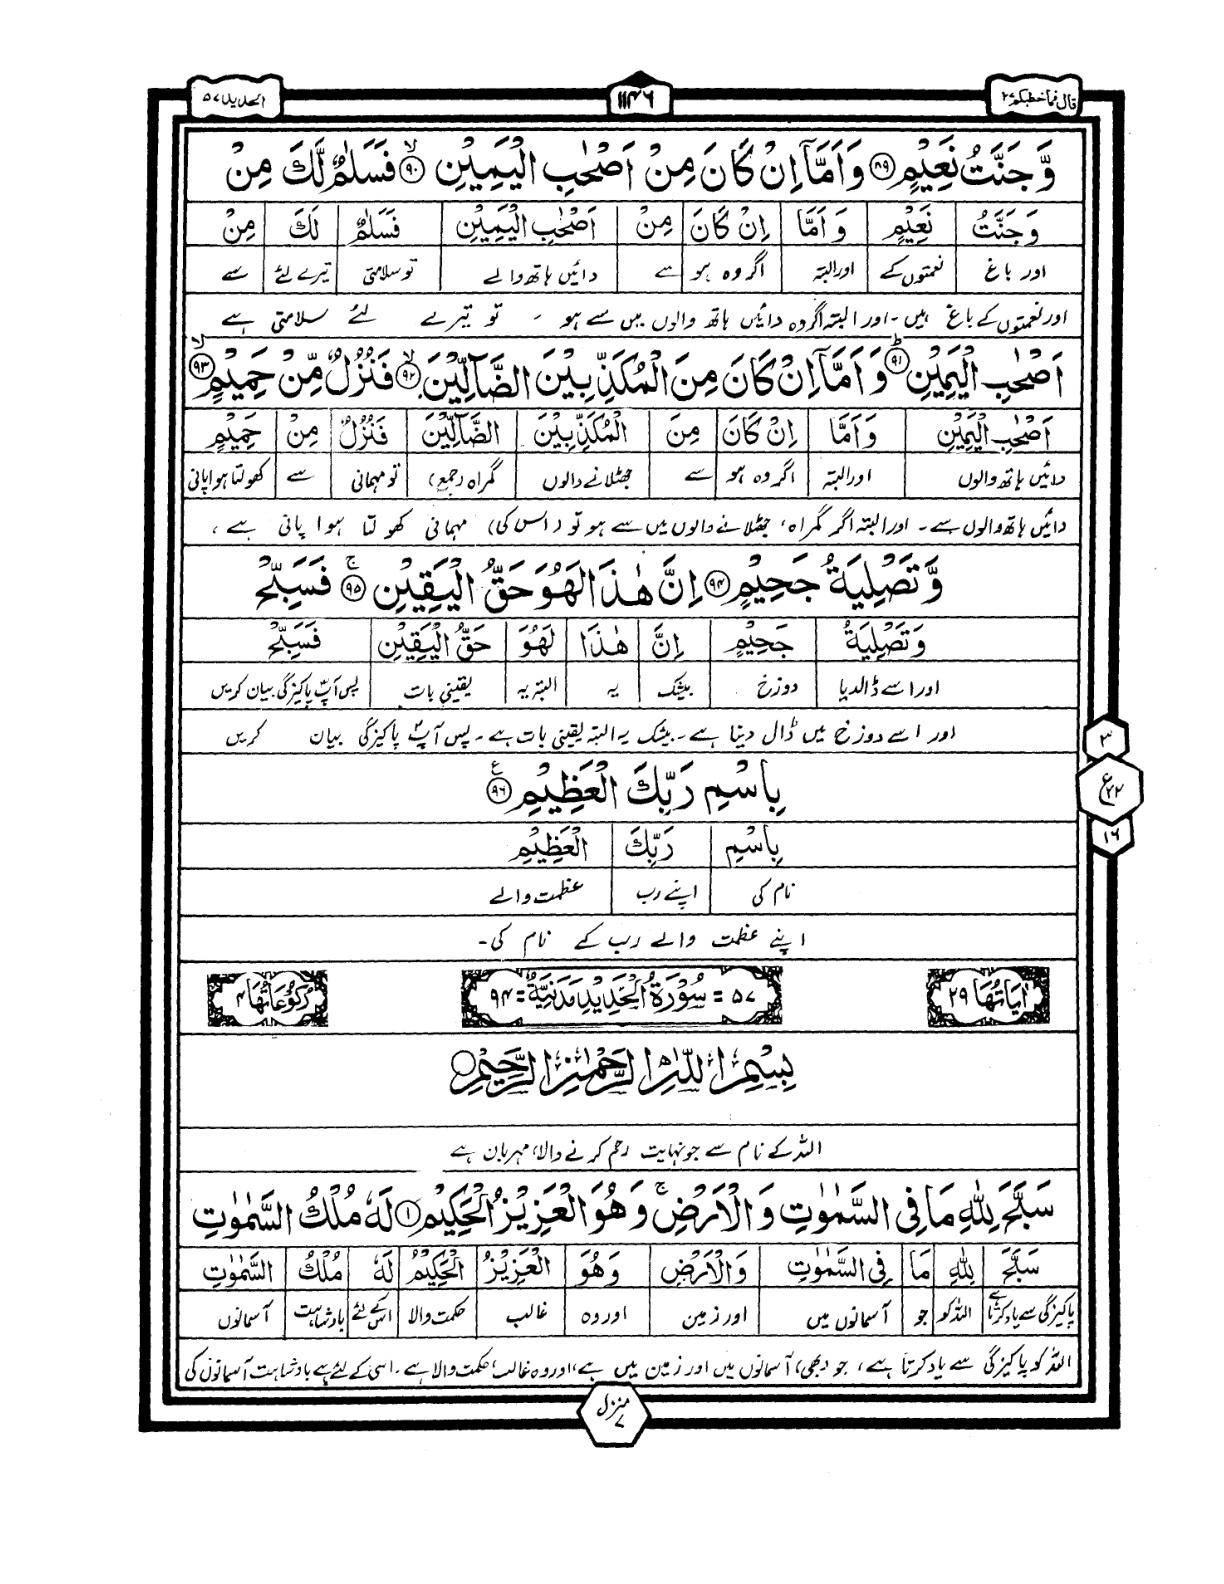 قال فما خطبکم ۲۷
۱۱۴۶
الحدید ۵۷
وَّ جَنَّتُ نَعِیْمٍ ﴿۸۹﴾ وَ اَمَّاۤ اِنْ کَانَ مِنْ اَصْحٰبِ الْیَمِیْنِ ﴿۹۰﴾ۙ فَسَلٰمٌ لَّکَ مِنْ
وَ جَنَّتُ | نَعِیْمٍ | وَ اَمَّا | اِنْ کَانَ | مِنْ | اَصْحٰبِ الْیَمِیْنِ | فَسَلٰمٌ | لَکَ | مِنْ
اور باغ | نعمتوں کے | اور البتہ | اگر وہ ہو | سے | دائیں ہاتھ والے | تو سلامتی | تیرے لئے | سے
اور نعمتوں کے باغ ہیں۔ اور البتہ اگر وہ دائیں ہاتھ والوں میں سے ہو ۔ تو تیرے لئے سلامتی ہے
اَصْحٰبِ الْیَمِیْنِ ﴿۹۱﴾ؕ وَ اَمَّاۤ اِنْ کَانَ مِنَ الْمُکَذِّبِیْنَ الضَّآلِّیْنَ ﴿۹۲﴾ۙ فَنُزُلٌ مِّنْ حَمِیْمٍ ﴿۹۳﴾ۙ
اَصْحٰبِ الْیَمِیْنِ | وَ اَمَّا | اِنْ کَانَ | مِنَ | الْمُکَذِّبِیْنَ | الضَّآلِّیْنَ | فَنُزُلٌ | مِنْ | حَمِیْمٍ
دائیں ہاتھ والوں | اور البتہ | اگر وہ ہو | سے | جھٹلانے والوں | گمراہ (جمع) | تو مہمانی | سے | کھولتا ہوا پانی
دائیں ہاتھ والوں سے۔ اور البتہ اگر گمراہ، جھٹلانے والوں میں سے ہو تو (اس کی) مہمانی کھولتا ہوا پانی ہے،
وَّ تَصْلِیَۃُ جَحِیْمٍ ﴿۹۴﴾ اِنَّ ہٰذَا لَہُوَ حَقُّ الْیَقِیْنِ ﴿۹۵﴾ۚ فَسَبِّحْ
وَ تَصْلِیَۃُ | جَحِیْمٍ | اِنَّ | ہٰذَا | لَہُوَ | حَقُّ الْیَقِیْنِ | فَسَبِّحْ
اور اسے ڈالدیا | دوزخ | بیشک | یہ | البتہ یہ | یقینی بات | پس آپؐ پاکیزگی بیان کریں
اور اسے دوزخ میں ڈال دینا ہے۔ بیشک یہ البتہ یقینی بات ہے۔ پس آپؐ پاکیزگی بیان کریں
۳
بِاسْمِ رَبِّکَ الْعَظِیْمِ ﴿۹۶﴾ع
ع ۲۲
۱۶
بِاسْمِ | رَبِّکَ | الْعَظِیْمِ
نام کی | اپنے رب | عظمت والے
اپنے عظمت والے رب کے نام کی۔
اٰیَاتُہَا ۲۹
۵۷ = سُوْرَۃُ الْحَدِیْدِ مَدَنِیَّۃٌ = ۹۴
رُکُوْعَاتُہَا ۴
بِسْمِ اللّٰہِ الرَّحْمٰنِ الرَّحِیْمِ
اللہ کے نام سے جو نہایت رحم کرنے والا، مہربان ہے
سَبَّحَ لِلّٰہِ مَا فِی السَّمٰوٰتِ وَ الْاَرْضِ ۚ وَ ہُوَ الْعَزِیْزُ الْحَکِیْمُ ﴿۱﴾ لَہٗ مُلْکُ السَّمٰوٰتِ
سَبَّحَ | لِلّٰہِ | مَا | فِی السَّمٰوٰتِ | وَ الْاَرْضِ | وَ ہُوَ | الْعَزِیْزُ | الْحَکِیْمُ | لَہٗ | مُلْکُ | السَّمٰوٰتِ
پاکیزگی سے یاد کرتا ہے | اللہ کو | جو | آسمانوں میں | اور زمین | اور وہ | غالب | حکمت والا | اس کے لئے | بادشاہت | آسمانوں
اللہ کو پاکیزگی سے یاد کرتا ہے، جو (بھی) آسمانوں میں اور زمین میں ہے، اور وہ غالب، حکمت والا ہے۔ اسی کے لئے ہے بادشاہت آسمانوں کی
منزل ۷